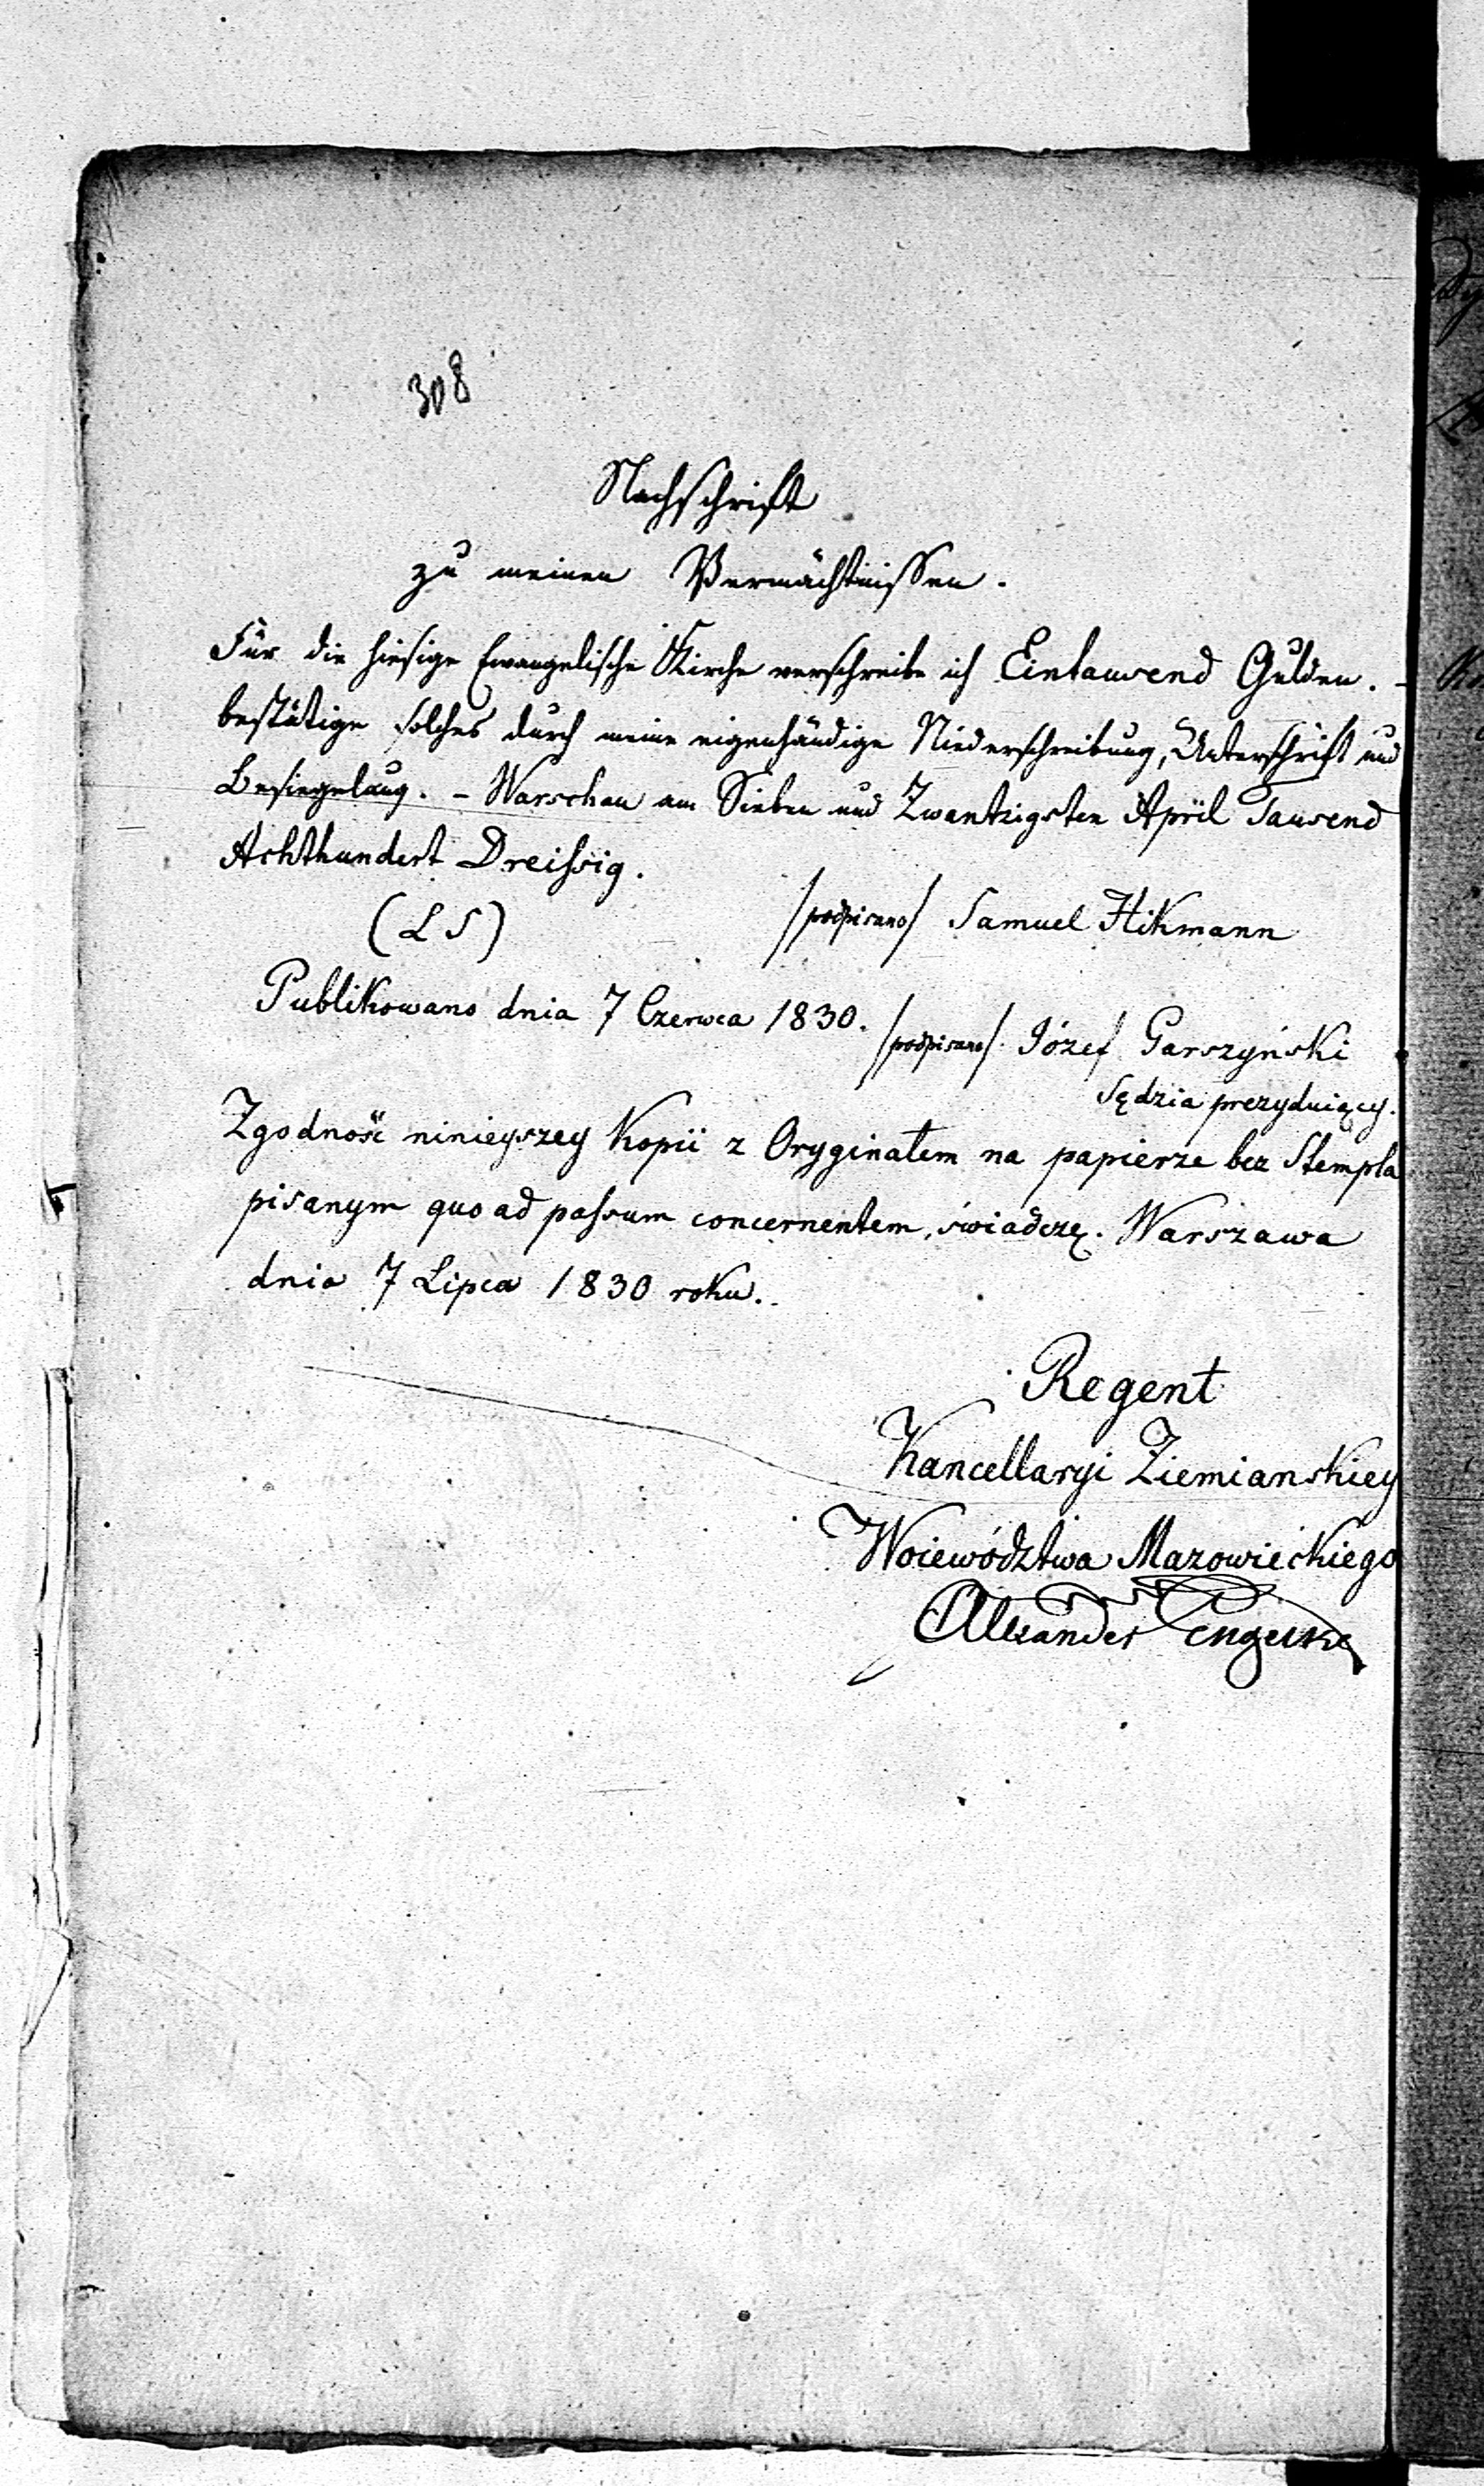 308
Nachschrift
zu meinen Vermächtnissen.
Für die hiesige Ewangelische Kirche verschreibe ich Eintausend Gulden. -
bestätige solches durch meine eigenhändige Niederschreibung, Unterschrift und
Besiegelung. - Warschau am Sieben und Zwantzigsten April Tausend
Achthundert Dreissig.
(LS) /podpisano/ Samuel Hikmann
Publikowano dnia 7 Czerwca 1830.
/podpisano/. Józef Garszyński
Sędzia prezyduiący.
Zgodność ninieyszey Kopii z Oryginałem na papierze bez Stempla
pisanym quo ad passum concernentem, świadczę. Warszawa
dnia 7 Lipca 1830 roku.
Regent
Kancellaryi Ziemianskiey
Woiewództwa Mazowieckiego
Alexander Engelke